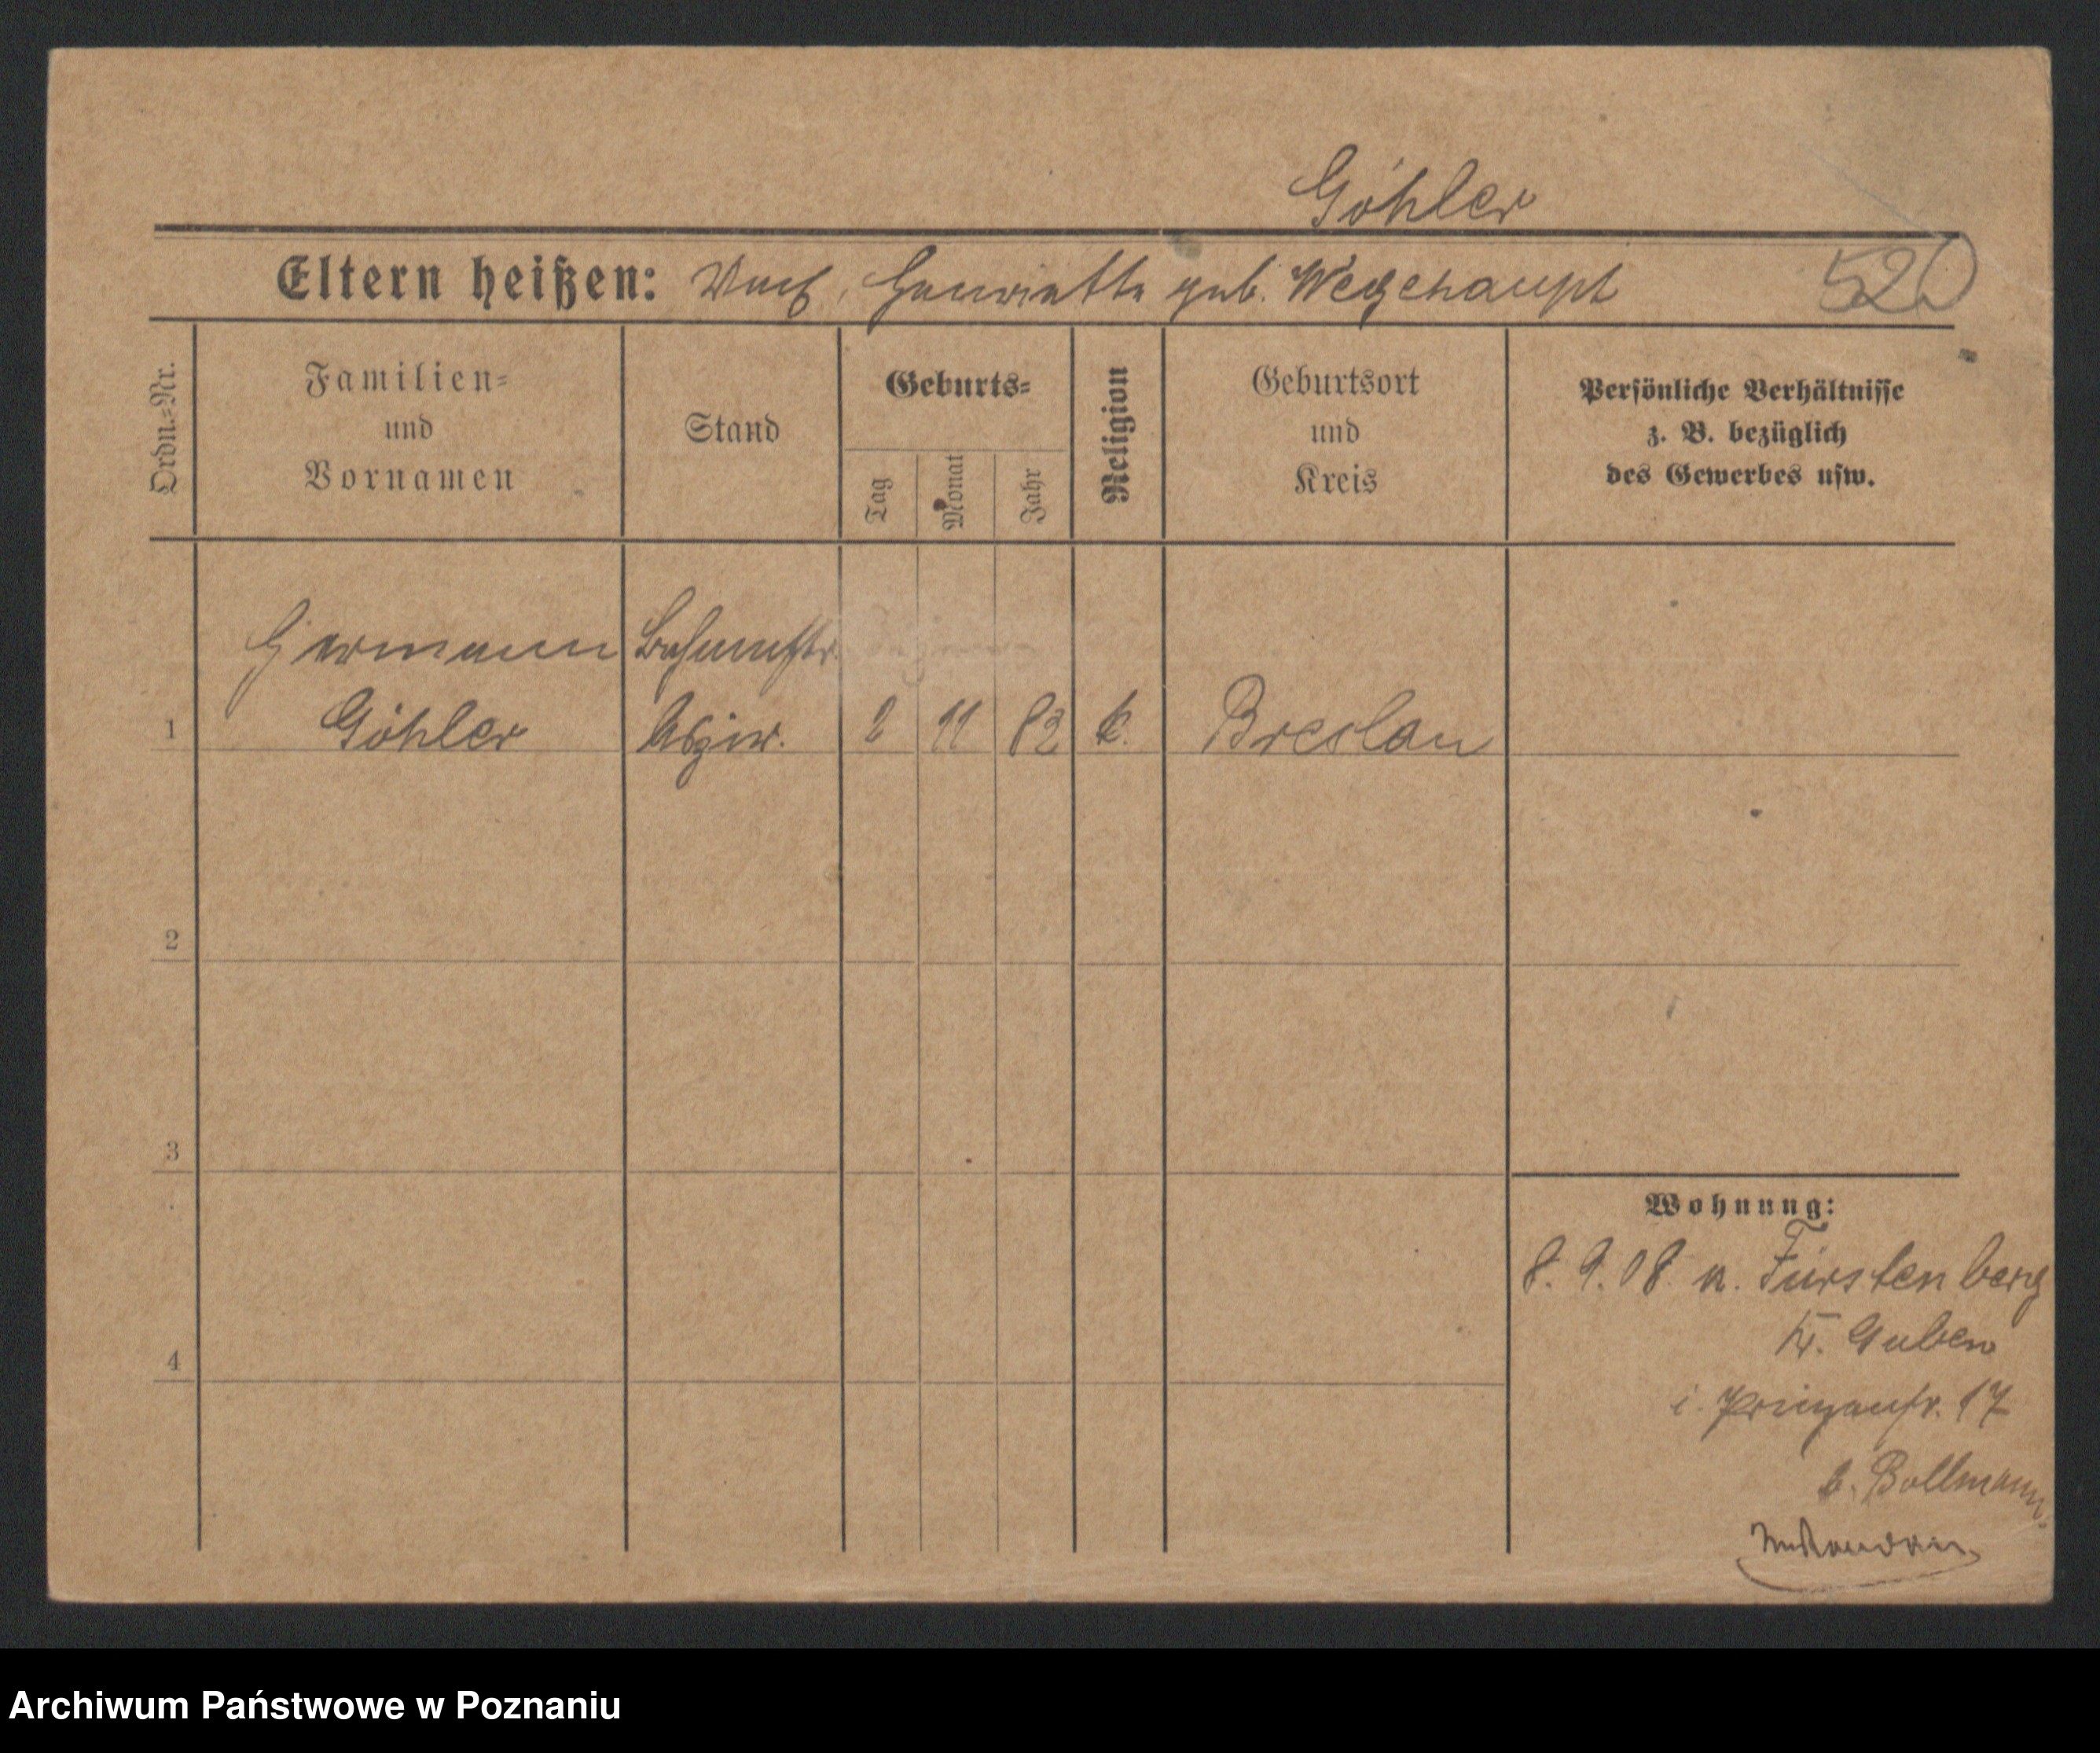 Göhler
Eltern heißen: Henriette geb. Wegehaupt 520
Ordn.-Nr.
Familien-
und
Vornamen
Stand
Geburts-
Tag
Monat
Jahr
Religion
Geburtsort
und
Kreis
Persönliche Verhältnisse
z. B. bezüglich
des Gewerbes usw.
Hermann
Göhler
1 2 11 82 k. Breslau
2
3
4
Wohnung:
8. 9. 08. n. Fürstenberg
Kr. Guben
17
b. Bollmann.
Archiwum Państwowe w Poznaniu